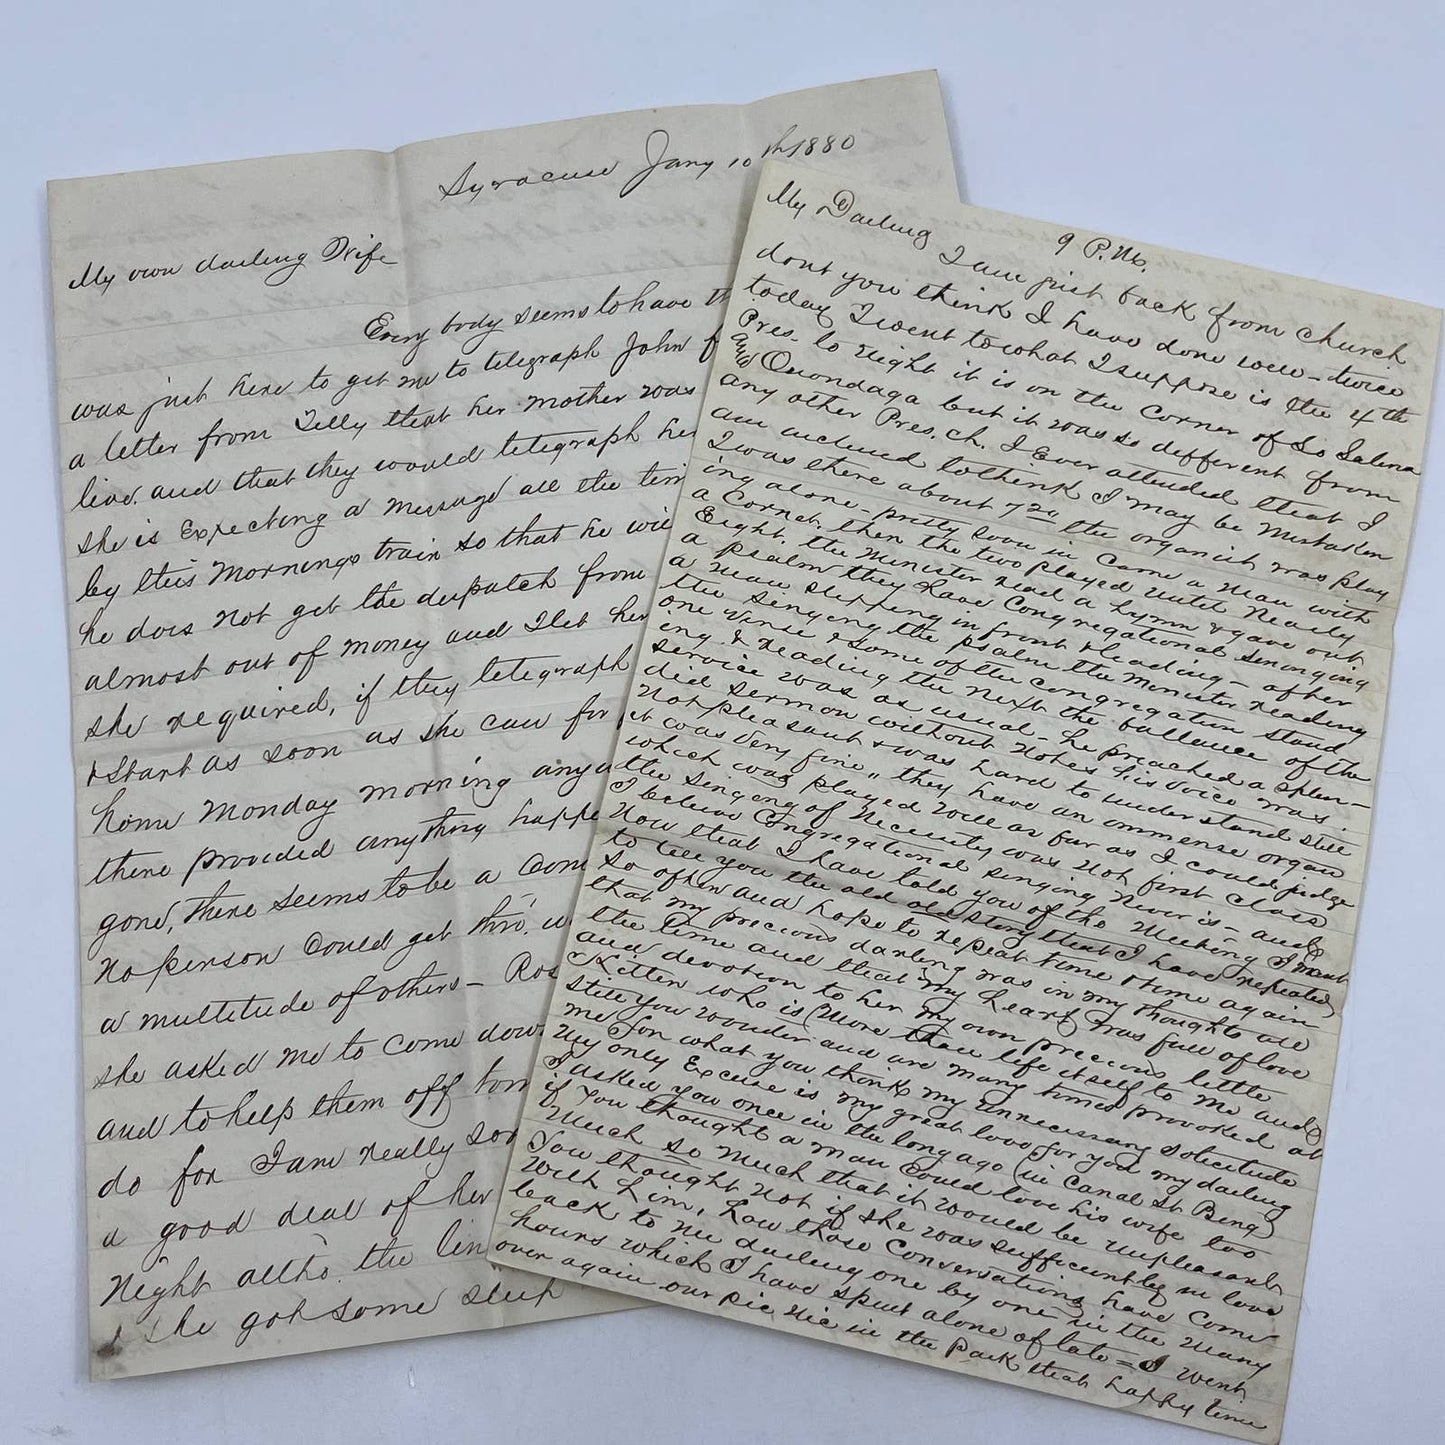 Syracuse Jany 10th 1880
My own darling Wife
Every body seems to have th
was just here to get me to telegraph John f
a letter from Tilly that her mother was
live. and that they would telegraph her
she is Expecting a message all the tim
by this mornings train so that he wil
he does not get the dispatch from
almost out of money and I let her
she required, if they telegraph
& start as soon as she can for
home Monday morning anyw
there provided anything happe
gone, there seems to be a Com
No person Could get thro. w
a multitude of others — Ros
she asked me to come down
and to help them off tom
do for I am really sor
a good deal of her
Night altho. the lin
& she got some sleep
My Darling
9 P.M.
I am just back from church
dont you think I have done well - twice
today I went to what I suppose is the 4th
Pres. to night it is on the Corner of So Salina
and Onondaga but it was so different from
any other Pres. ch. I Ever attended that I
am inclined to think I may be mistaken
I was there about 7 20 the organist was play
ing alone - pretty soon in came a man with
a Cornet. then the two played until Nearly
Eight. the Minister read a hymn & gave out
a psalm they have Congregational singing
a man stepping in front & leading - after
the singing the psalm the Minister reading
one Verse & some of the congregation stand
ing & reading the next the ballance of the
service was as usual - he preached a splen-
did sermon without Notes, his voice was
not pleasant & was hard to understand still
it was Very fine, they have an immense organ
which was played well as far as I could judge
the singing of Necessity was not first class
I believe Congregational singing Never is - and
Now that I have told you of the Meeting I want
to tell you the old old story that I have repeated
so often and hope to repeat time & time again
that my precious darling was in my thoughts all
the time and that my heart was full of love
and devotion to her my own precious little
Kitten who is More than life itself to me and
still you wonder and are many times provoked at
me for what you think my unnecessary solicitude
My only Excuse is my great love for you my darling
I asked you once in the long ago (in Canal St Bing)
if You thought a man Could love his wife too
much so much that it would be unpleasant
You thought not if she was sufficiently in love
with him, how those Conversations have Come
back to me darling one by one in the many
hours which I have spent alone of late = I went
over again our pic nic in the Park that happy time